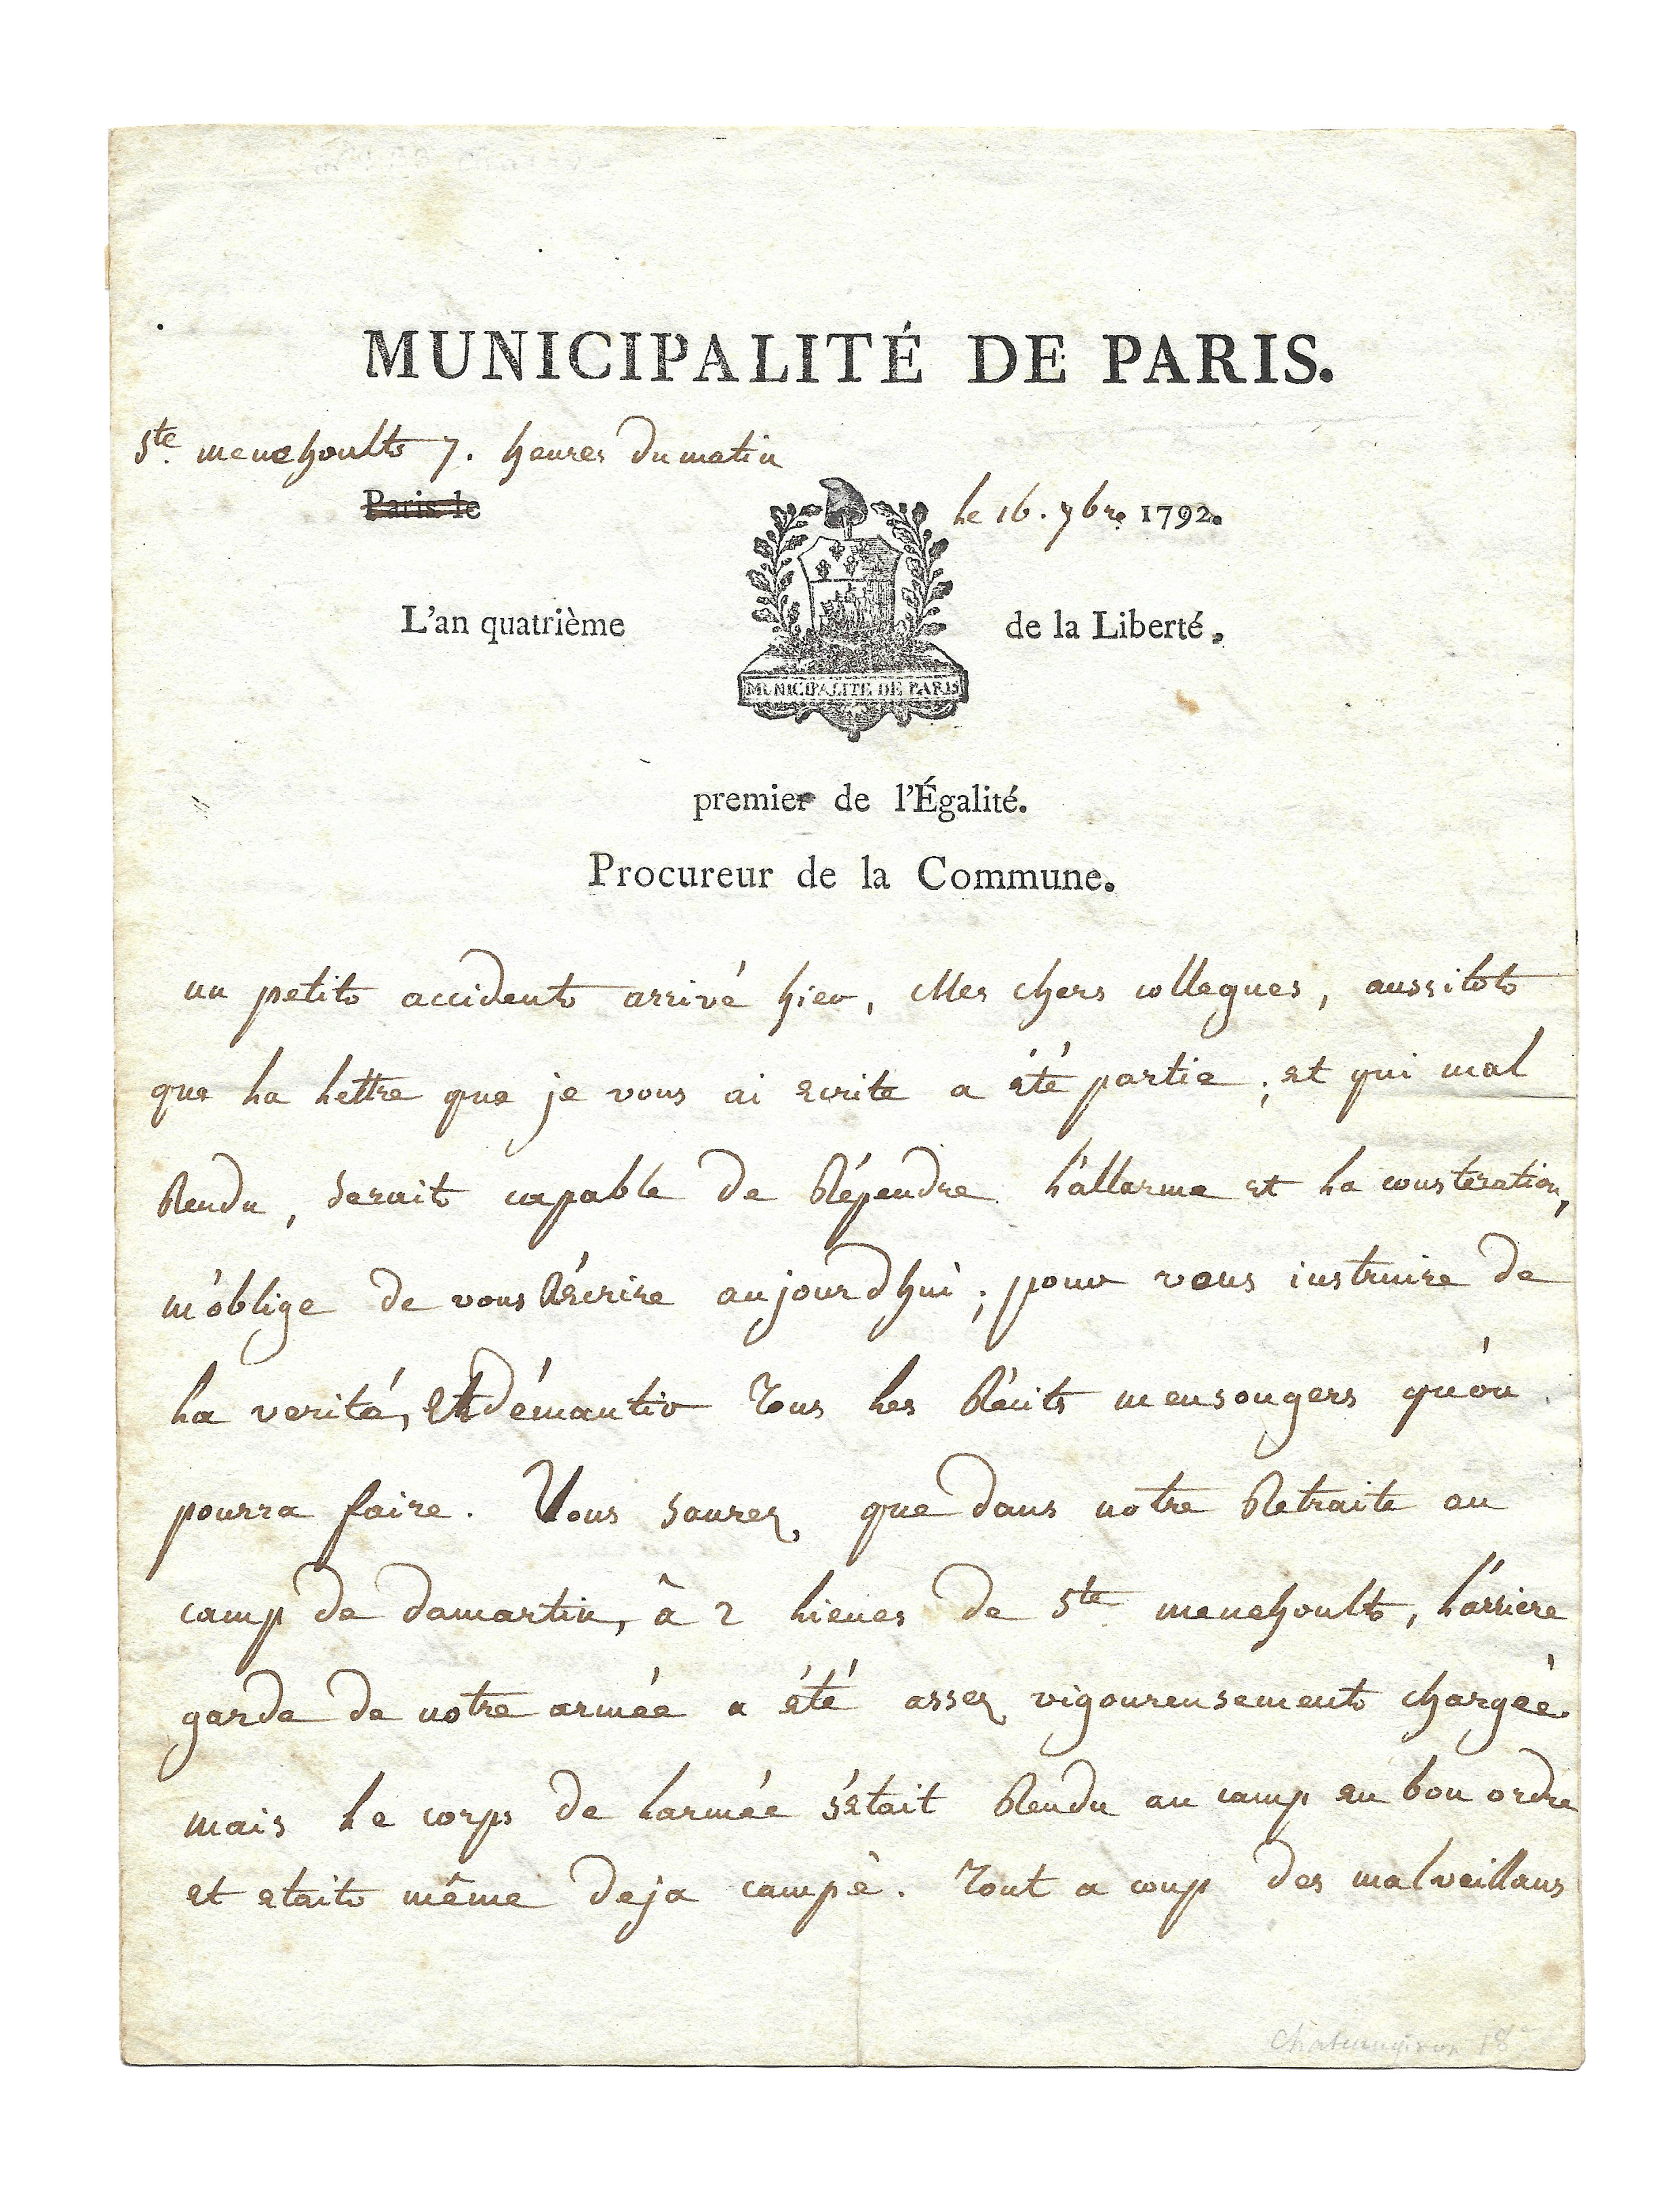 MUNICIPALITÉ DE PARIS.
Ste. menehoult 7. heures du matin
Paris le
le 16. 7bre 1792.
L'an quatrième
de la Liberté,
MUNICIPALITE DE PARIS
premier de l'Égalité.
Procureur de la Commune.
un petit accident arrivé hier, Mes chers collegues, aussitot
que la lettre que je vous ai ecrite a été partie ; et qui mal
Rendu, serait capable de Répendre l'allarme et la consteration,
m'oblige de vous Récrire aujourd'hui ; pour vous instruire de
la verité, et démantir Tous les Récits mensongers qu'on
pourra faire. Vous saurez que dans notre Retraite au
camp de damartin, à 2 lieues de Ste menehoult, l'arriere
garde de notre armée a été assez vigoureusement chargée
mais le corps de l'armée s'etait Rendu au camp en bon ordre
et etait même deja campé. Tout a coup des malveillans